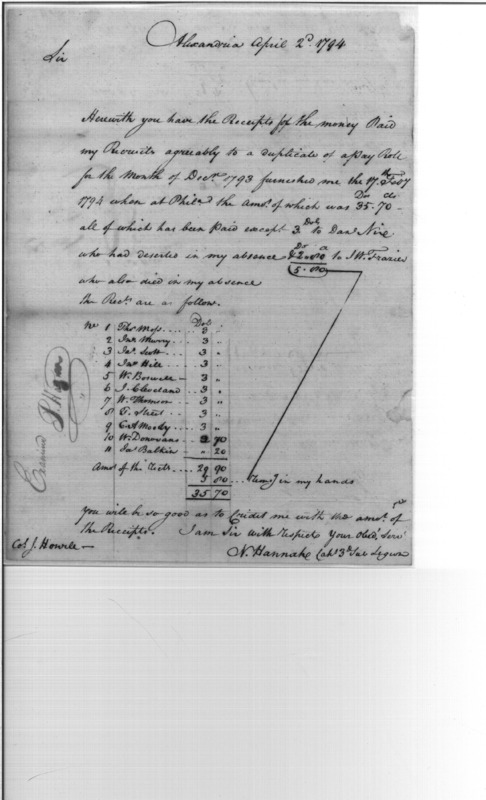 Alexandria April 2d. 1794
Sir
Herewith you have the Receipts for the money Paid
my Recruits agreeably to a duplicate of a Pay Role
for the Month of Decr. 1793 furnished me the 17.th Feby
1794 when at Philad the Amot. of which was Dos 35. cts 70 -
all of which has been Paid except 3 Dols to Danl
who had deserted in my absence & Do 2.00 to Wm. Frazier
5.00
who also died in my absence
the Rects. are as follow.
No 1 Thos Moss .... Dols 3 "
2 Jas Murry .... 3 "
3 Jas. Scott .... 3 "
4 Jas Hill .... 3 "
5 Wm. Boswell - 3 "
6 J. Cleveland .. 3 "
7 Wm. Thomson .. 3 "
8 T. .... 3 "
9 Moody .. 3 "
10 Wm. Donovans .. 90
11 Jas .. " 20
Amot. of the Rects .... 29 90
5 00 ... in my hands
35 70
Examined
You will be so good as to Credit me with the amot. of
the Receipts. I am Sir with respect Your Obed. Servt
Col J. Howell -
N. Hannah Capt 3d Sub Legion